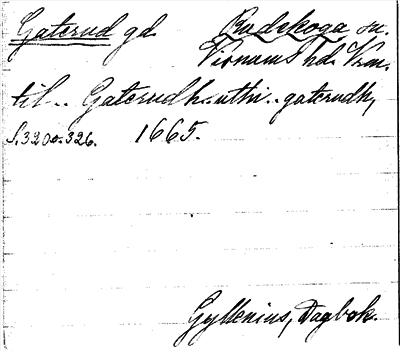 Gaterud gd. Rudskoga sn.
Visnums hd. Vrm.
til.. Gaterudh..uthi..gaterudh,
S. 320 o. 326. 1665.
Gyllenius, Dagbok.